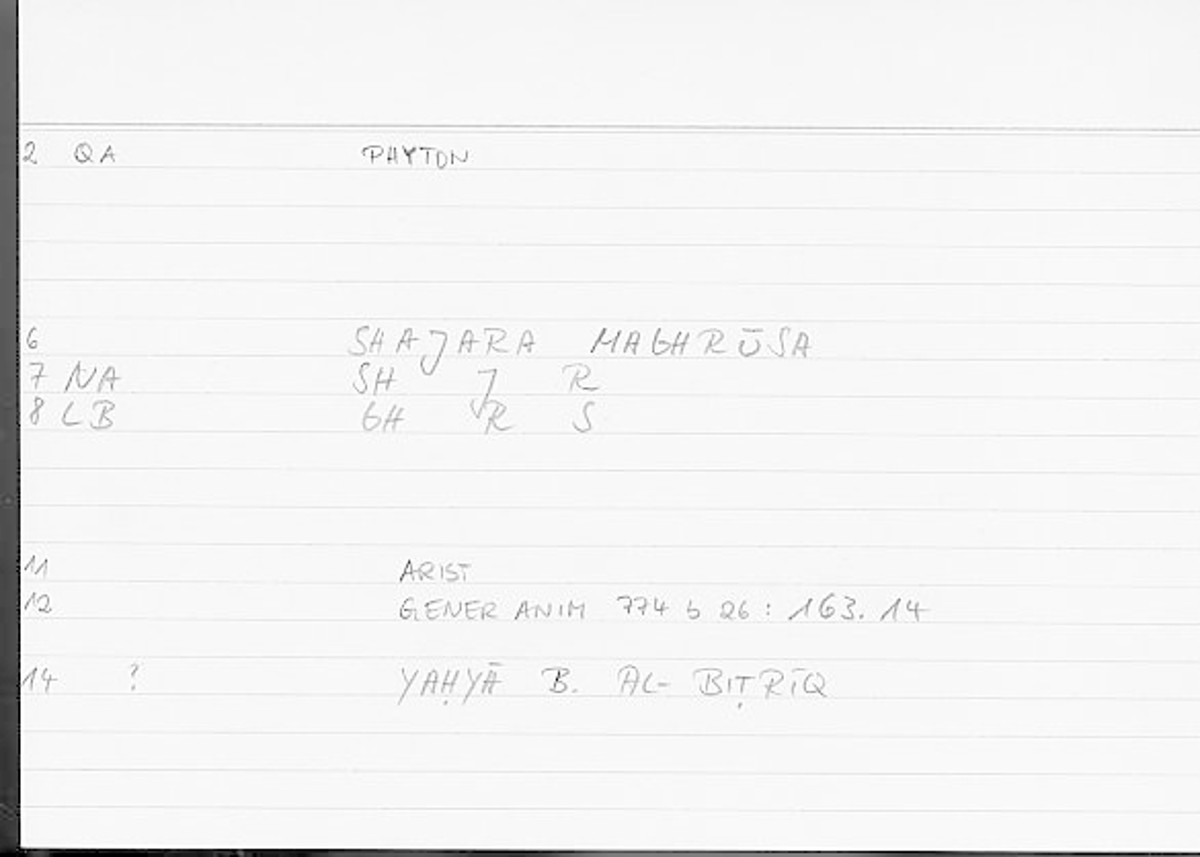 2 QA PHYTON
6 SHAJARA MAGHRŪSA
7 NA SH J R
8 LB GH R S
11 ARIST
12 GENER ANIM 774 b 26 : 163. 14
14 ? YAḤYĀ B. AL-BIṬRĪQ